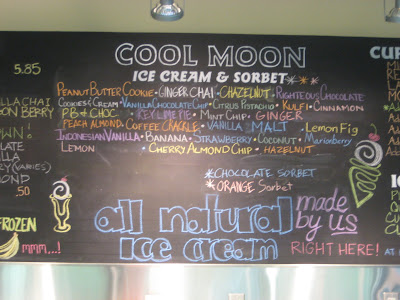 COOL MOON
ICE CREAM & SORBET
5.85
PEANUT BUTTER COOKIE • GINGER CHAI • CHAZELNUT • RIGHTEOUS CHOCOLATE
COOKIES & CREAM • VANILLA CHOCOLATE CHIP • CITRUS PISTACHIO • KULFI • CINNAMON
PB + CHOC • KEY LIME PIE • MINT CHIP • GINGER
PEACH ALMOND • COFFEE CRACKLE • VANILLA MALT • Lemon Fig
INDONESIAN VANILLA • BANANA • STRAWBERRY • COCONUT • Marionberry
LEMON • CHERRY ALMOND CHIP • HAZELNUT
*CHOCOLATE SORBET
*ORANGE Sorbet
.50
all natural
ice cream
made
by us
RIGHT HERE!
FROZEN
mmm...!